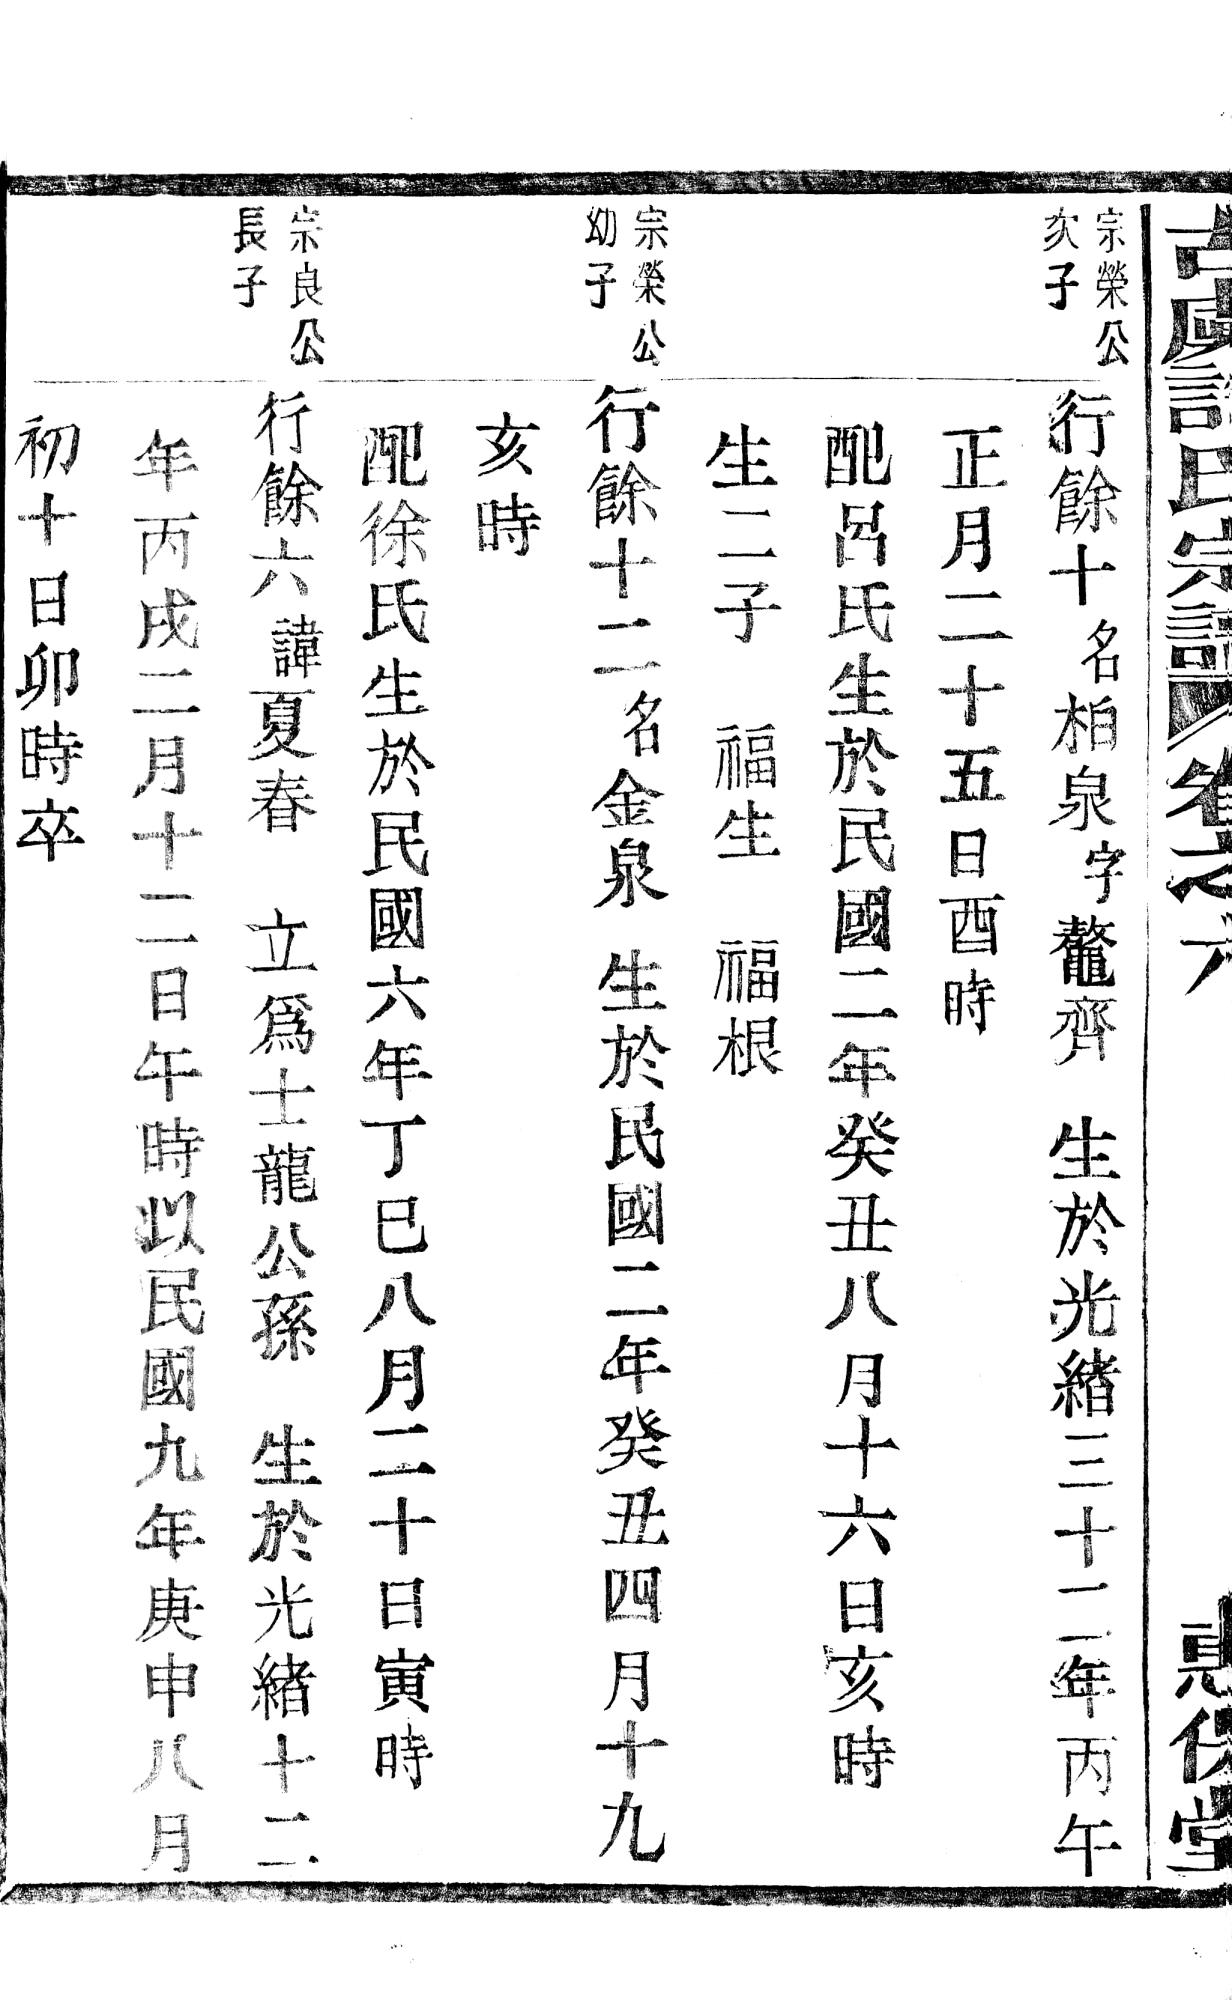 古虞 氏宗譜 卷之六 保堂
宗榮公
次子
行餘十名柏泉字鼇齊 生於光緒三十二年丙午
正月二十五日酉時
配呂氏生於民國二年癸丑八月十六日亥時
生二子 福生 福根
宗榮公
幼子
行餘十二名金泉 生於民國二年癸丑四月十九
亥時
配徐氏生於民國六年丁巳八月二十日寅時
宗良公
長子
行餘六諱夏春 立爲士龍公孫 生於光緒十二
年丙戌二月十二日午時以民國九年庚申八月
初十日卯時卒